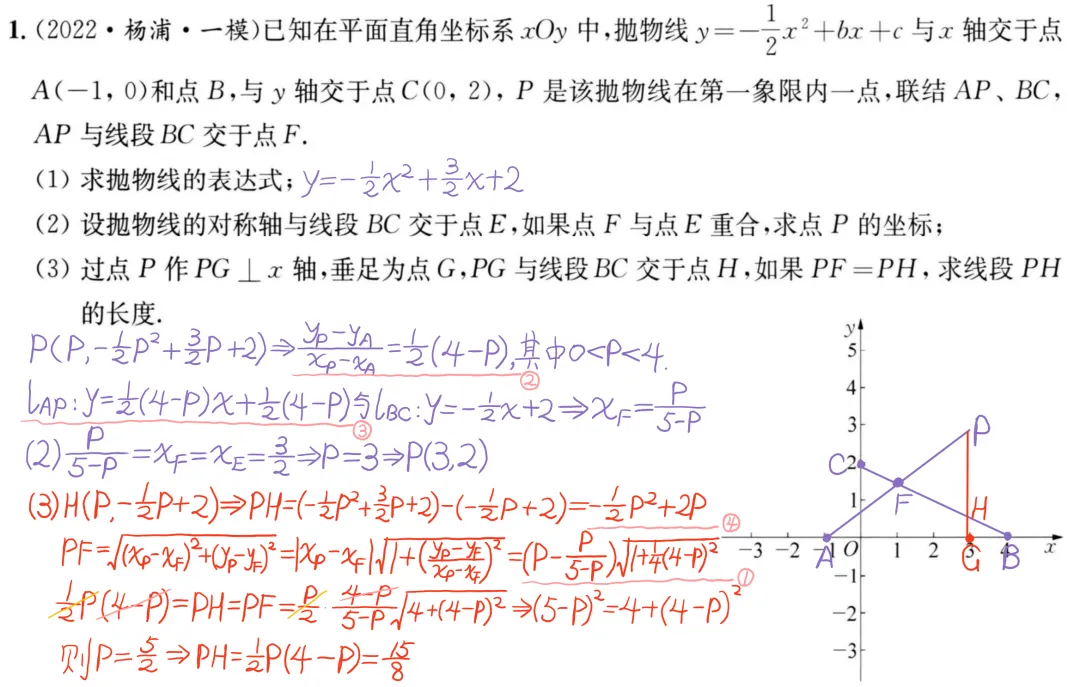 1. (2022·杨浦·一模)已知在平面直角坐标系 xOy 中,抛物线 y=-\frac{1}{2}x²+bx+c 与 x 轴交于点
A(-1, 0)和点 B,与 y 轴交于点 C(0, 2), P 是该抛物线在第一象限内一点,联结 AP、BC,
AP 与线段 BC 交于点 F.
(1) 求抛物线的表达式; y=-\frac{1}{2}x²+\frac{3}{2}x+2
(2) 设抛物线的对称轴与线段 BC 交于点 E,如果点 F 与点 E 重合,求点 P 的坐标;
(3) 过点 P 作 PG⊥x 轴,垂足为点 G,PG 与线段 BC 交于点 H,如果 PF=PH, 求线段 PH
的长度.
P(P,-\frac{1}{2}P²+\frac{3}{2}P+2)⇒\frac{y_P-y_A}{x_P-x_A}=\frac{1}{2}(4-P),其中0<P<4.
②
l_{AP}:y=\frac{1}{2}(4-P)x+\frac{1}{2}(4-P)与l_{BC}:y=-\frac{1}{2}x+2⇒x_F=\frac{P}{5-P}
③
(2)\frac{P}{5-P}=x_F=x_E=\frac{3}{2}⇒P=3⇒P(3,2)
(3)H(P,-\frac{1}{2}P+2)⇒PH=(-\frac{1}{2}P²+\frac{3}{2}P+2)-(-\frac{1}{2}P+2)=-\frac{1}{2}P²+2P
④
PF=\sqrt{(x_P-x_F)²+(y_P-y_F)²}=|x_P-x_F|\sqrt{1+(\frac{y_P-y_F}{x_P-x_F})²}=(P-\frac{P}{5-P})\sqrt{1+\frac{1}{4}(4-P)²}
①
\frac{1}{2}P(4-P)=PH=PF=\frac{P}{2}·\frac{4-P}{5-P}\sqrt{4+(4-P)²}⇒(5-P)²=4+(4-P)²
则P=\frac{5}{2}⇒PH=\frac{1}{2}P(4-P)=\frac{15}{8}
y
5
4
3
P
C
2
F
1
H
-3 -2 -1 O 1 2 3 4 x
A G B
-1
-2
-3